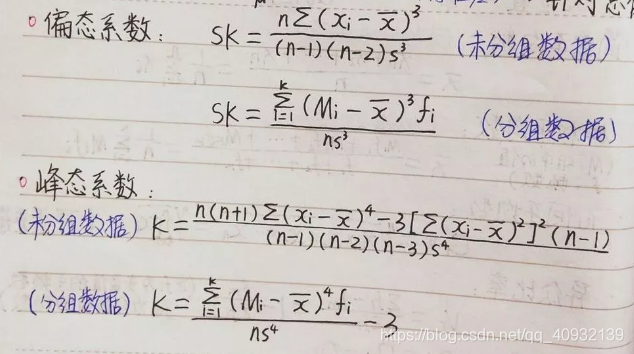 偏态系数： SK = n∑(xi - x̄)³ / (n-1)(n-2)s³ (未分组数据)
SK = ∑ᵏᵢ₌₁ (Mi - x̄)³fi / ns³ (分组数据)
峰态系数：
(未分组数据) K = n(n+1)∑(xi - x̄)⁴ - 3[∑(xi - x̄)²]²(n-1) / (n-1)(n-2)(n-3)s⁴
(分组数据) K = ∑ᵏᵢ₌₁ (Mi - x̄)⁴fi / ns⁴ - 3
https://blog.csdn.net/qq_40932139